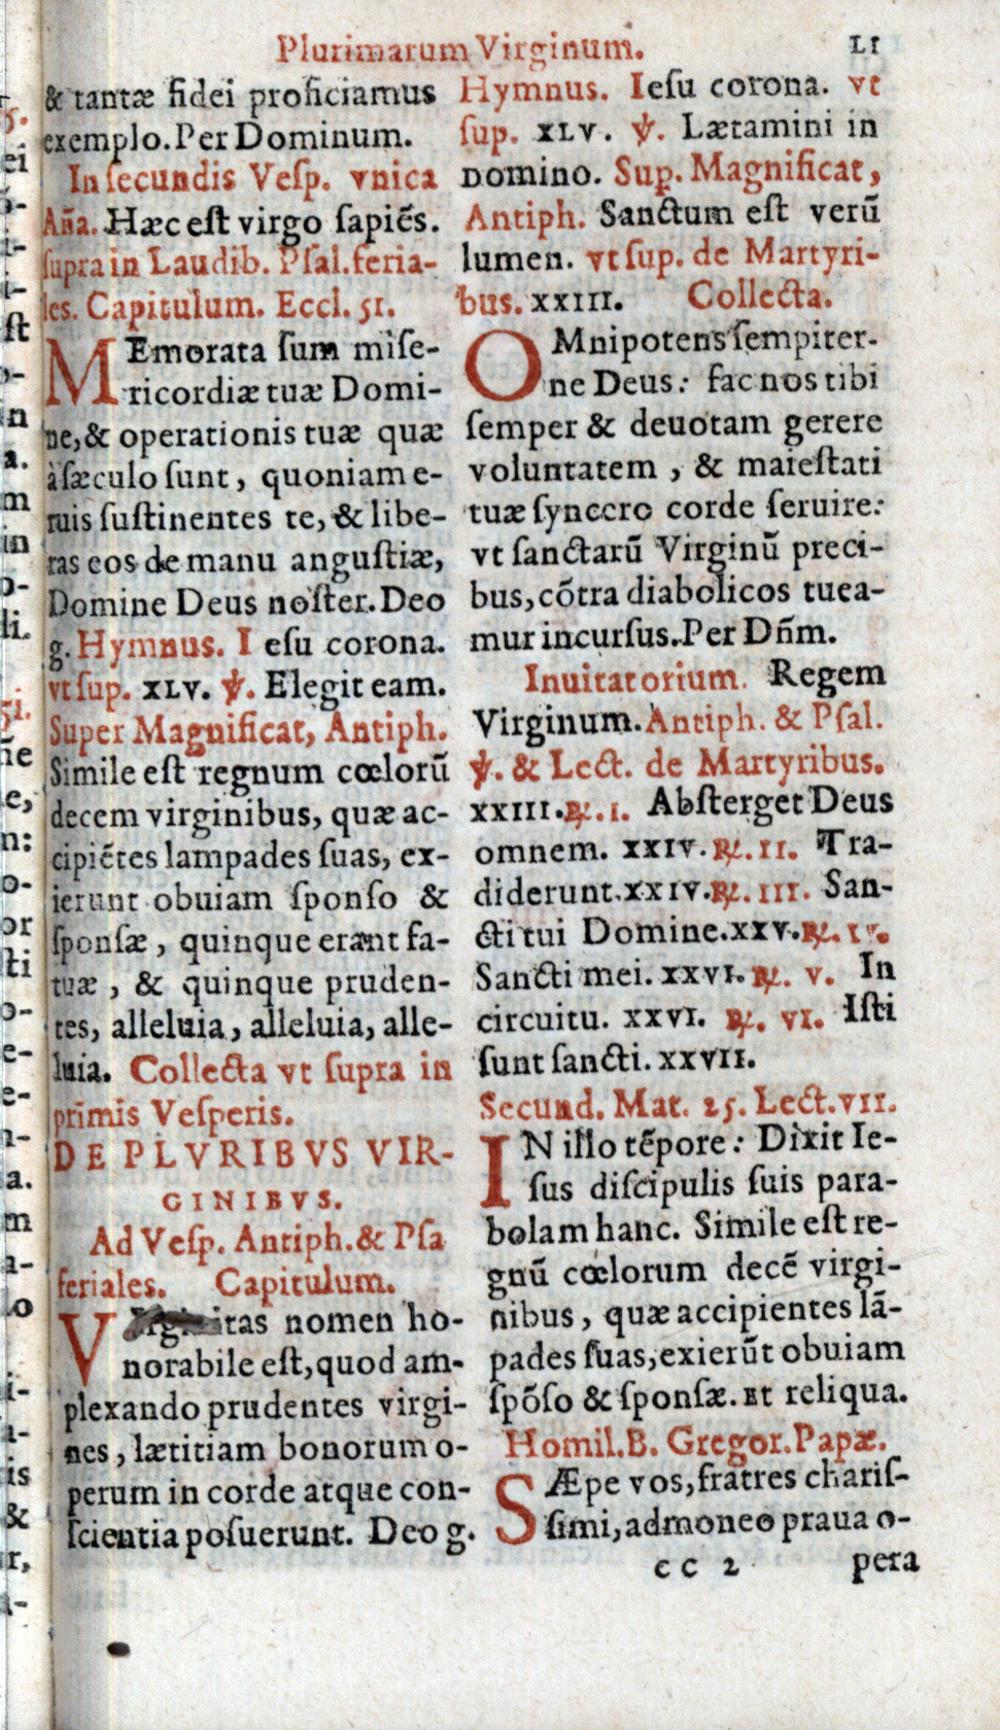 Plurimarum Virginum. LI
& tantæ fidei proficiamus
exemplo. Per Dominum.
In ſecundis Veſp. vnica
Aña. Hæc eſt virgo ſapiẽs.
ſupra in Laudib. Pſal. feria-
les. Capitulum. Eccl. 51.
MEmorata ſum miſe-
ricordiæ tuæ Domi-
ne, & operationis tuæ quæ
à ſæculo ſunt, quoniam e-
ruis ſuſtinentes te, & libe-
ras eos de manu anguſtiæ,
Domine Deus noſter. Deo
g. Hymnus. I eſu corona.
vt ſup. XLV. ℣. Elegit eam.
Super Magnificat, Antiph.
Simile eſt regnum cœlorũ
decem virginibus, quæ ac-
cipiẽtes lampades ſuas, ex-
ierunt obuiam ſponſo &
ſponſæ, quinque erant fa-
tuæ, & quinque pruden-
tes, alleluia, alleluia, alle-
luia. Collecta vt ſupra in
primis Veſperis.
DE PLVRIBVS VIR-
GINIBVS.
Ad Veſp. Antiph. & Pſa
feriales. Capitulum.
nomen ho-
norabile eſt, quod am-
plexando prudentes virgi-
nes, lætitiam bonorum o-
perum in corde atque con-
ſcientia poſuerunt. Deo g.
Hymnus. Ieſu corona. vt
ſup. XLV. ℣. Lætamini in
Domino. Sup. Magnificat,
Antiph. Sanctum eſt verũ
lumen. vt ſup. de Martyri-
bus. XXIII. Collecta.
OMnipotens ſempiter-
ne Deus: fac nos tibi
ſemper & deuotam gerere
voluntatem, & maieſtati
tuæ ſyncero corde ſeruire:
vt ſanctarũ Virginũ preci-
bus, cõtra diabolicos tuea-
mur incurſus. Per Dñm.
Inuitatorium. Regem
Virginum. Antiph. & Pſal.
℣. & Lect. de Martyribus.
XXIII. ℟. I. Abſterget Deus
omnem. XXIV. ℟. II. Tra-
diderunt. XXIV. ℟. III. San-
cti tui Domine. XXV. ℟. IV.
Sancti mei. XXVI. ℟. V. In
circuitu. XXVI. ℟. VI. Iſti
ſunt ſancti. XXVII.
Secund. Mat. 25. Lect. VII.
IN illo tẽpore: Dixit Ie-
ſus diſcipulis ſuis para-
bolam hanc. Simile eſt re-
gnũ cœlorum decẽ virgi-
nibus, quæ accipientes lã-
pades ſuas, exierũt obuiam
ſpõſo & ſponſæ. Et reliqua.
Homil. B. Gregor. Papæ.
SÆpe vos, fratres chariſ-
ſimi, admoneo praua o-
cc 2 pera